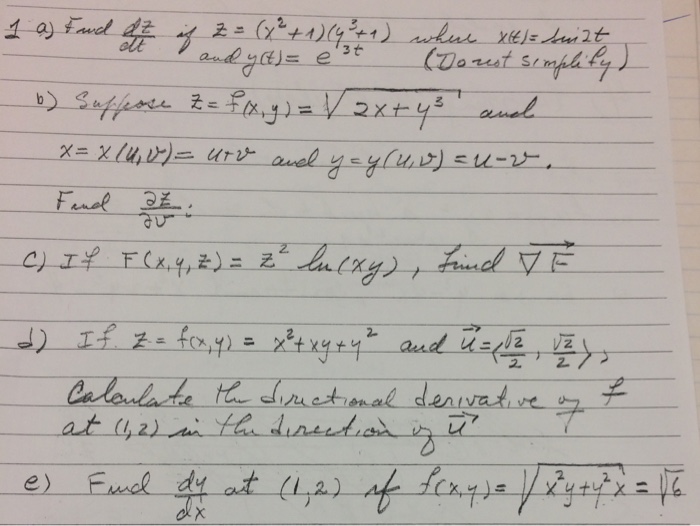 1 a) Find dz/dt if z = (x²+1)(y³+1) where x(t)= sin2t
and y(t)= e^3t (Do not simplify)
b) Suppose z = f(x,y) = √(2x+y³) and
x = x(u,v) = u+v and y = y(u,v) = u-v.
Find ∂z/∂v:
c) If F(x,y,z) = z² ln(xy), find ∇F
d) If z = f(x,y) = x²+xy+y² and u⃗ = ⟨√2/2, √2/2⟩,
Calculate the directional derivative of f
at (1,2) in the direction of u⃗
e) Find dy/dx at (1,2) if f(x,y) = √(x²y+y²x) = √6